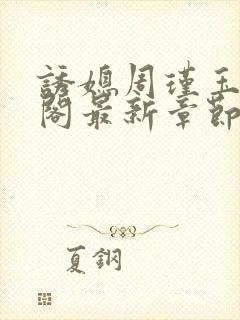 誘媳周瑾玉
閣最新章節
夏鋼